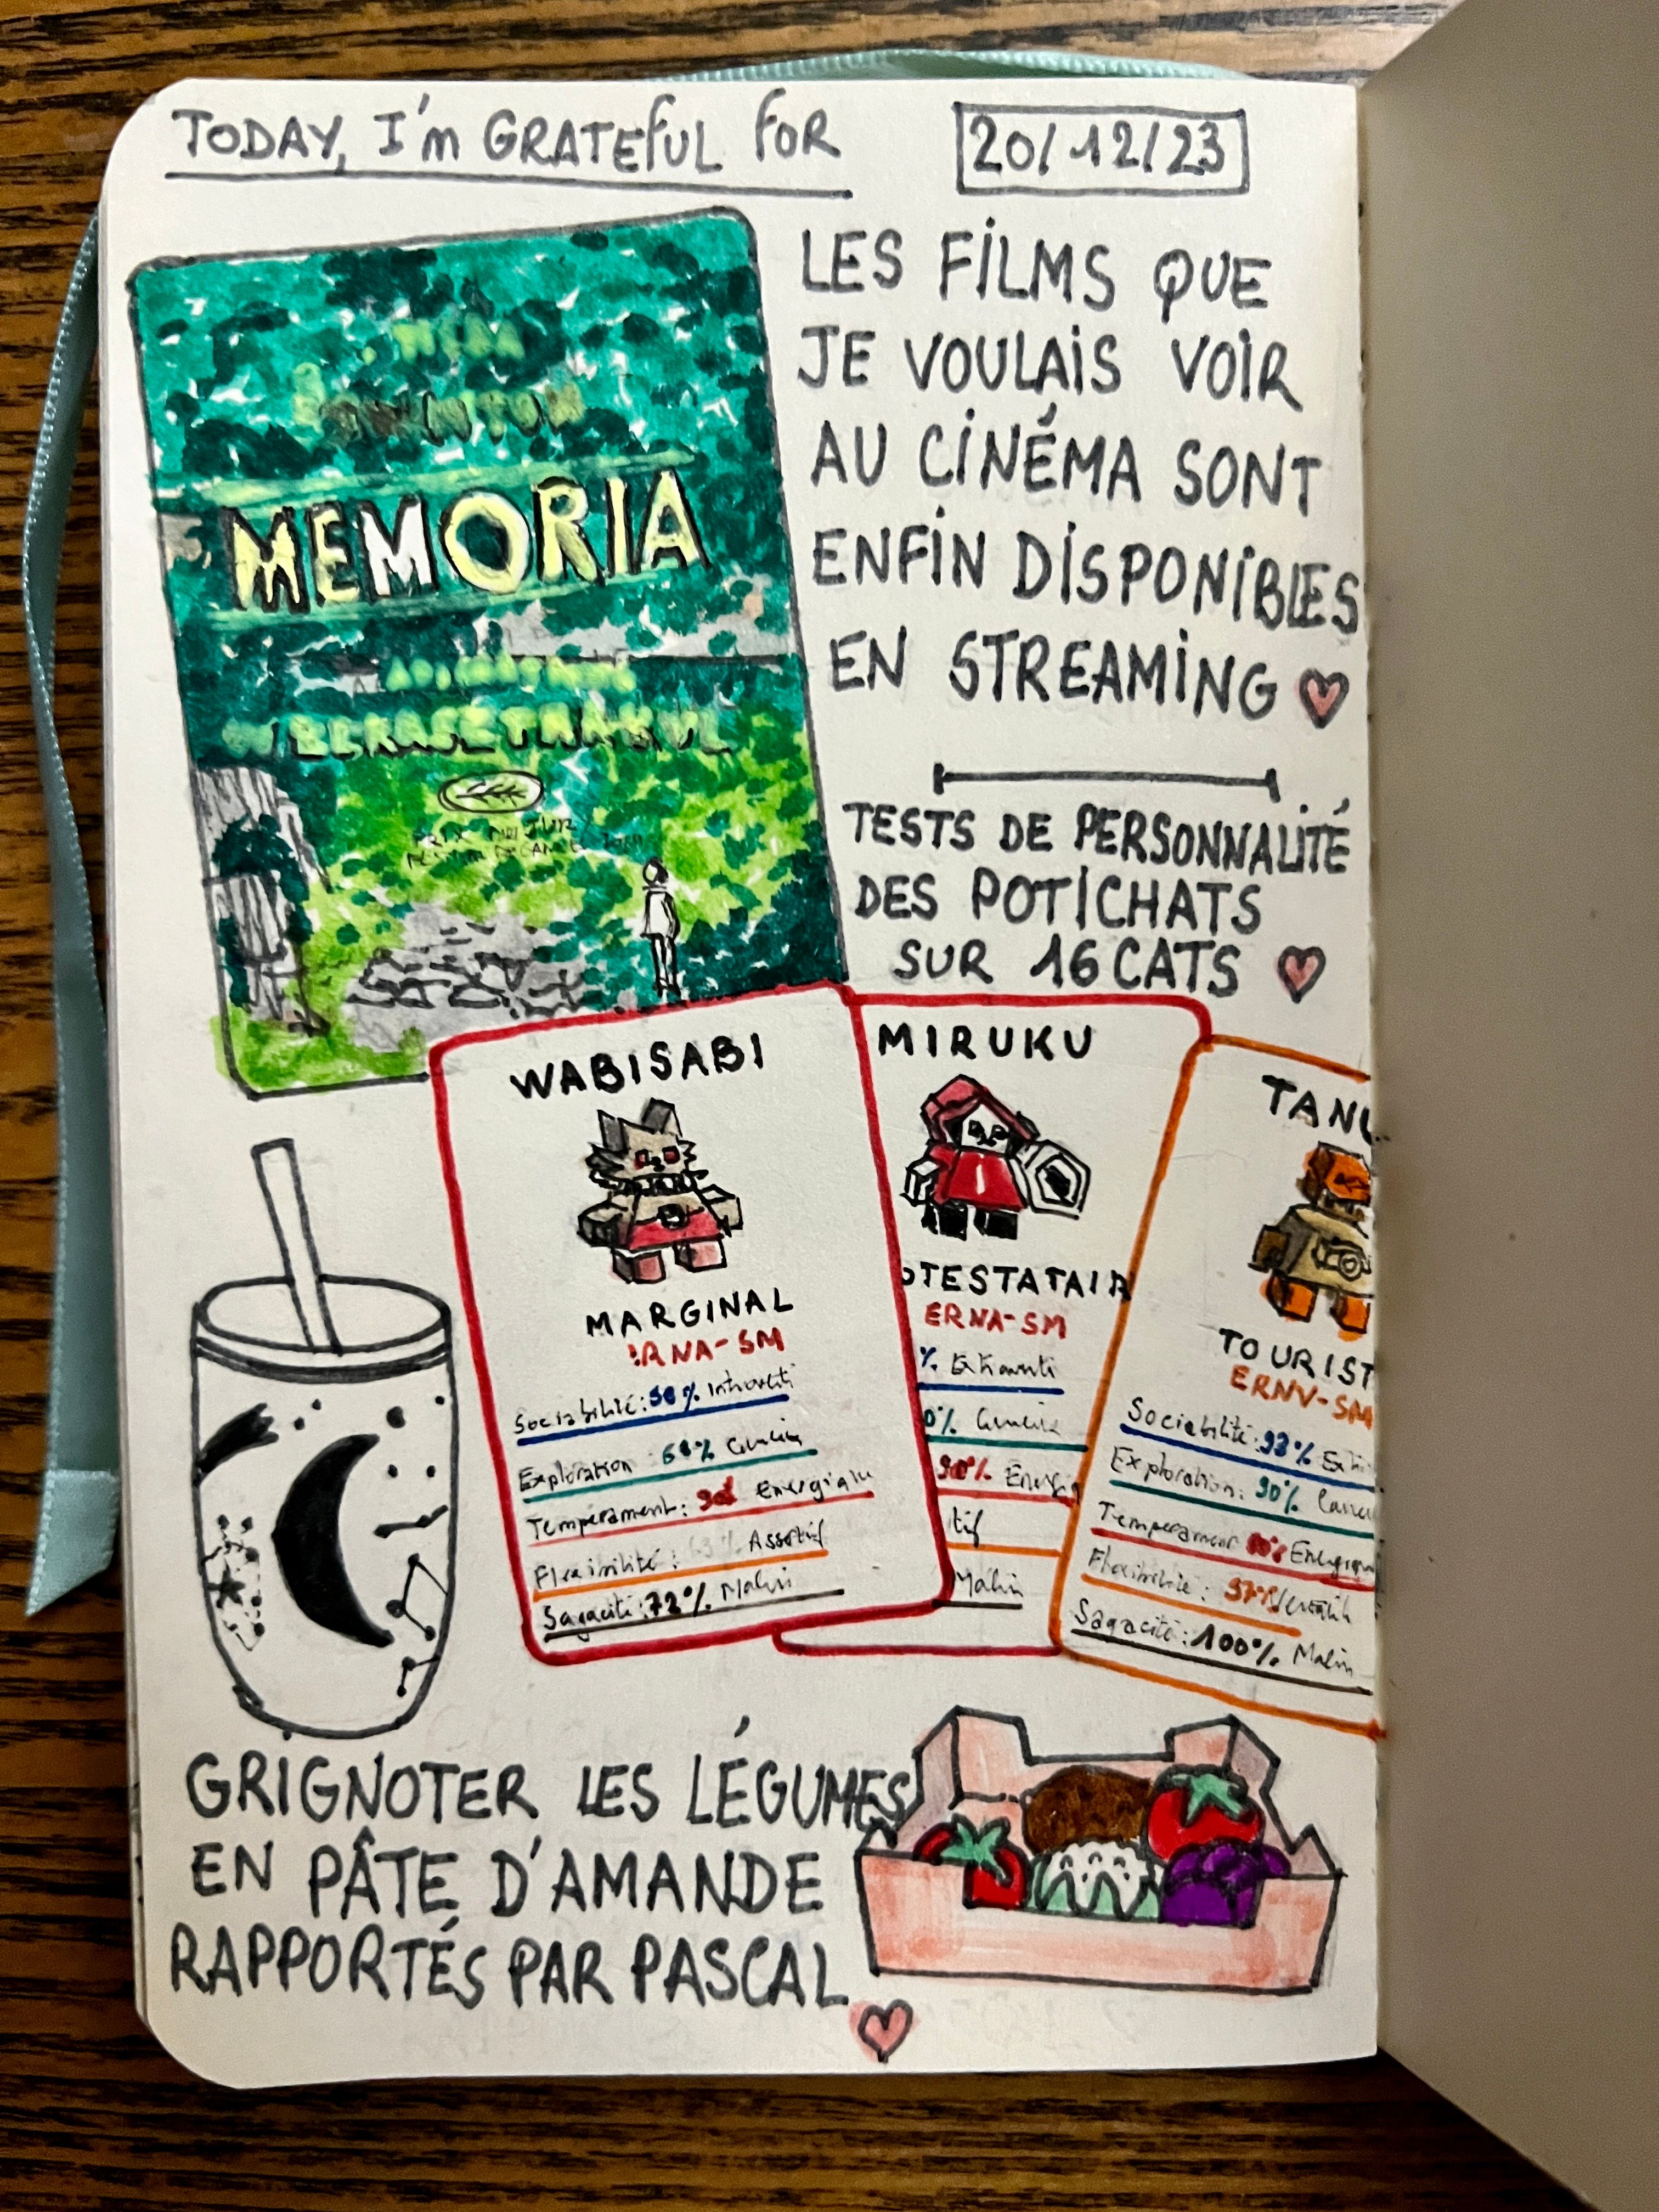 TODAY, I'm GRATEFUL FOR
20/12/23
LES FILMS QUE
JE VOULAIS VOIR
AU CINÉMA SONT
ENFIN DISPONIBLES
EN STREAMING
MEMORIA
TESTS DE PERSONNALITÉ
DES POTICHATS
SUR 16 CATS
WABISABI
MARGINAL
IRNA-SM
Sociabilité: 58% Introverti
Exploration: 68%
Temperament: 90% Energique
Flexibilité: 63% Assertif
Sagacité: 72% Malin
MIRUKU
OTESTATAIR
ERNA-SM
% Extraverti
0%
90% Energiq
tif
Malin
TANU
TOURIST
ERNV-SM
Sociabilité: 93% Extra
Exploration: 90%
Temperament Energique
Flexibilité: 97%
Sagacité: 100% Malin
GRIGNOTER LES LÉGUMES
EN PÂTE D'AMANDE
RAPPORTÉS PAR PASCAL